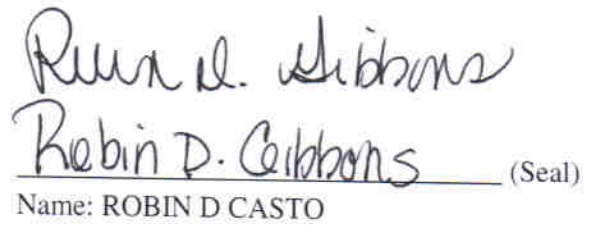 Robin D. Gibbons
Robin D. Gibbons (Seal)
Name: ROBIN D CASTO